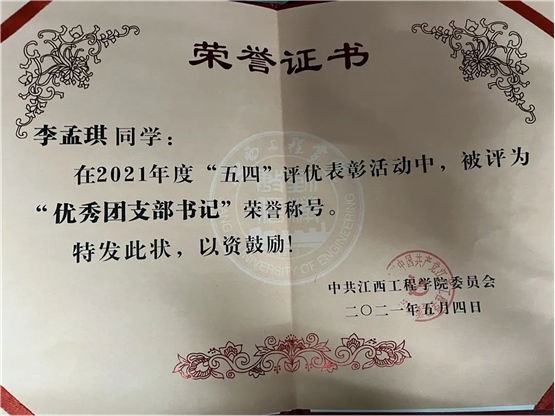 荣誉证书
李孟琪同学：
在2021年度“五四”评优表彰活动中，被评为
“优秀团支部书记”荣誉称号。
特发此状，以资鼓励！
中共江西工程学院委员会
二〇二一年五月四日